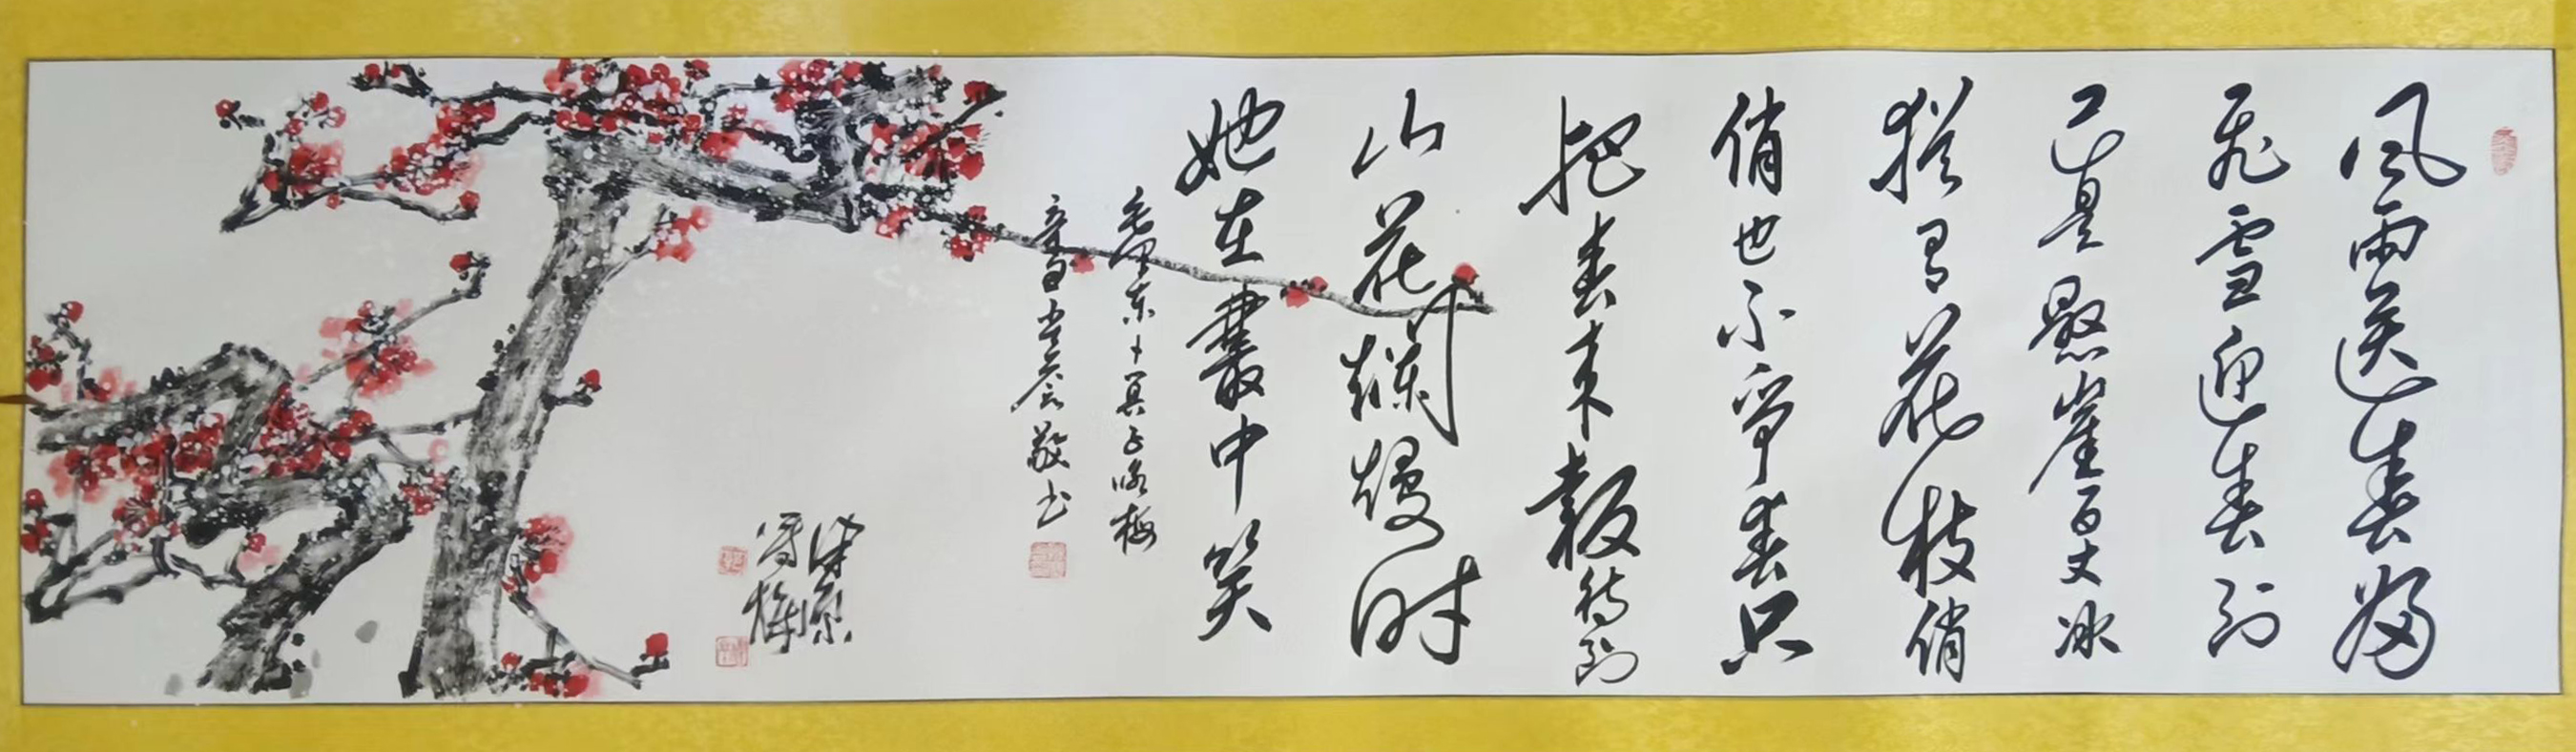 风雨送春归
飞雪迎春到
已是悬崖百丈冰
犹有花枝俏
俏也不争春只
把春来报待到
山花烂熳时
她在叢中笑
毛泽东卜算子咏梅
敬书